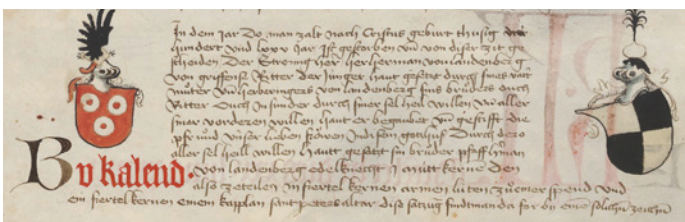 In dem jar Do man zalt nach Cristus geburt thusig vier
hundert vnd lxxv jar Ist gestorben vn̄ von diser zit ge
scheiden Der Streng her herman von landenberg
von griffense Ritter der Junger hant gesetzt durch sines vatt
mutter vn̄ herberingers von landenberg sins bruders ouch
Ritter Ouch in sunder durch siner sel heil willen vn̄ aller
siner vorderen willen hant er begaubet vn̄ gestifft die
pfr vnd vnser lieben frowen in disem gotzhus Durch dero
aller sel heill willen hautt gesetzt sin bruder pfaff h̄man
von landenberg edelknecht j mütt kerne Den
Bv kalend.
also ze teilen iij fiertel kernen armen lüten zu einer spend vnd
ein fiertel kernen einem kapplan sant peters altar dis satzug findt man da for by eine sölichn zeichn